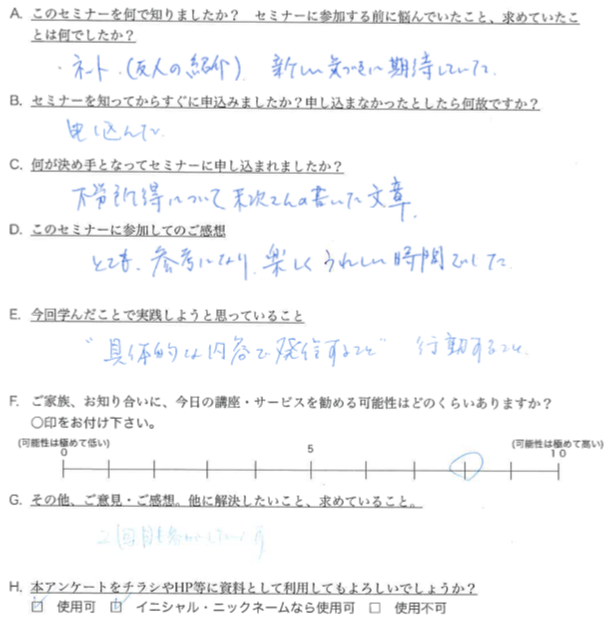 A. このセミナーを何で知りましたか？ セミナーに参加する前に悩んでいたこと、求めていたこ
とは何でしたか？
・ネット．(友人の紹介) 新しい気づきに期待していた．
B. セミナーを知ってからすぐに申込みましたか？申し込まなかったとしたら何故ですか？
申し込んだ．
C. 何が決め手となってセミナーに申し込まれましたか？
不労所得について末次さんの書いた文章．
D. このセミナーに参加してのご感想
とても、参考になり、楽しくうれしい時間でした．
E. 今回学んだことで実践しようと思っていること
"具体的な内容で発信すること" 行動すること．
F. ご家族、お知り合いに、今日の講座・サービスを勧める可能性はどのくらいありますか？
〇印をお付け下さい。
(可能性は極めて低い) (可能性は極めて高い)
0 5 10
G. その他、ご意見・ご感想。他に解決したいこと、求めていること。
2回目も
H. 本アンケートをチラシやHP等に資料として利用してもよろしいでしょうか？
☑ 使用可 ☑ イニシャル・ニックネームなら使用可 □ 使用不可